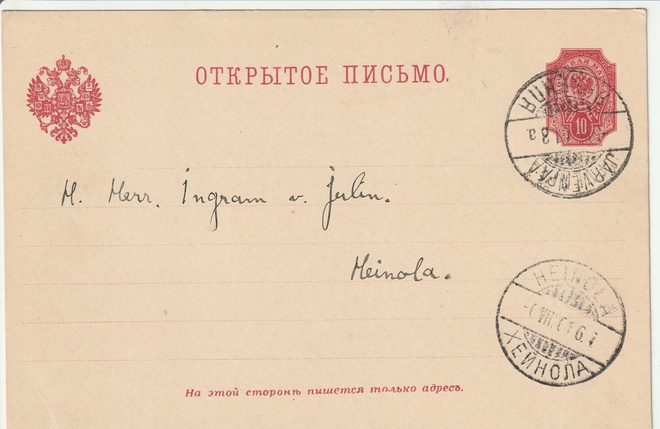 ОТКРЫТОЕ ПИСЬМО.
10
JÄRVENPÄÄ
H. Herr. Ingram v. Julin.
Heinola.
HEINOLA
ХЕЙНОЛА
На этой сторонѣ пишется только адресъ.